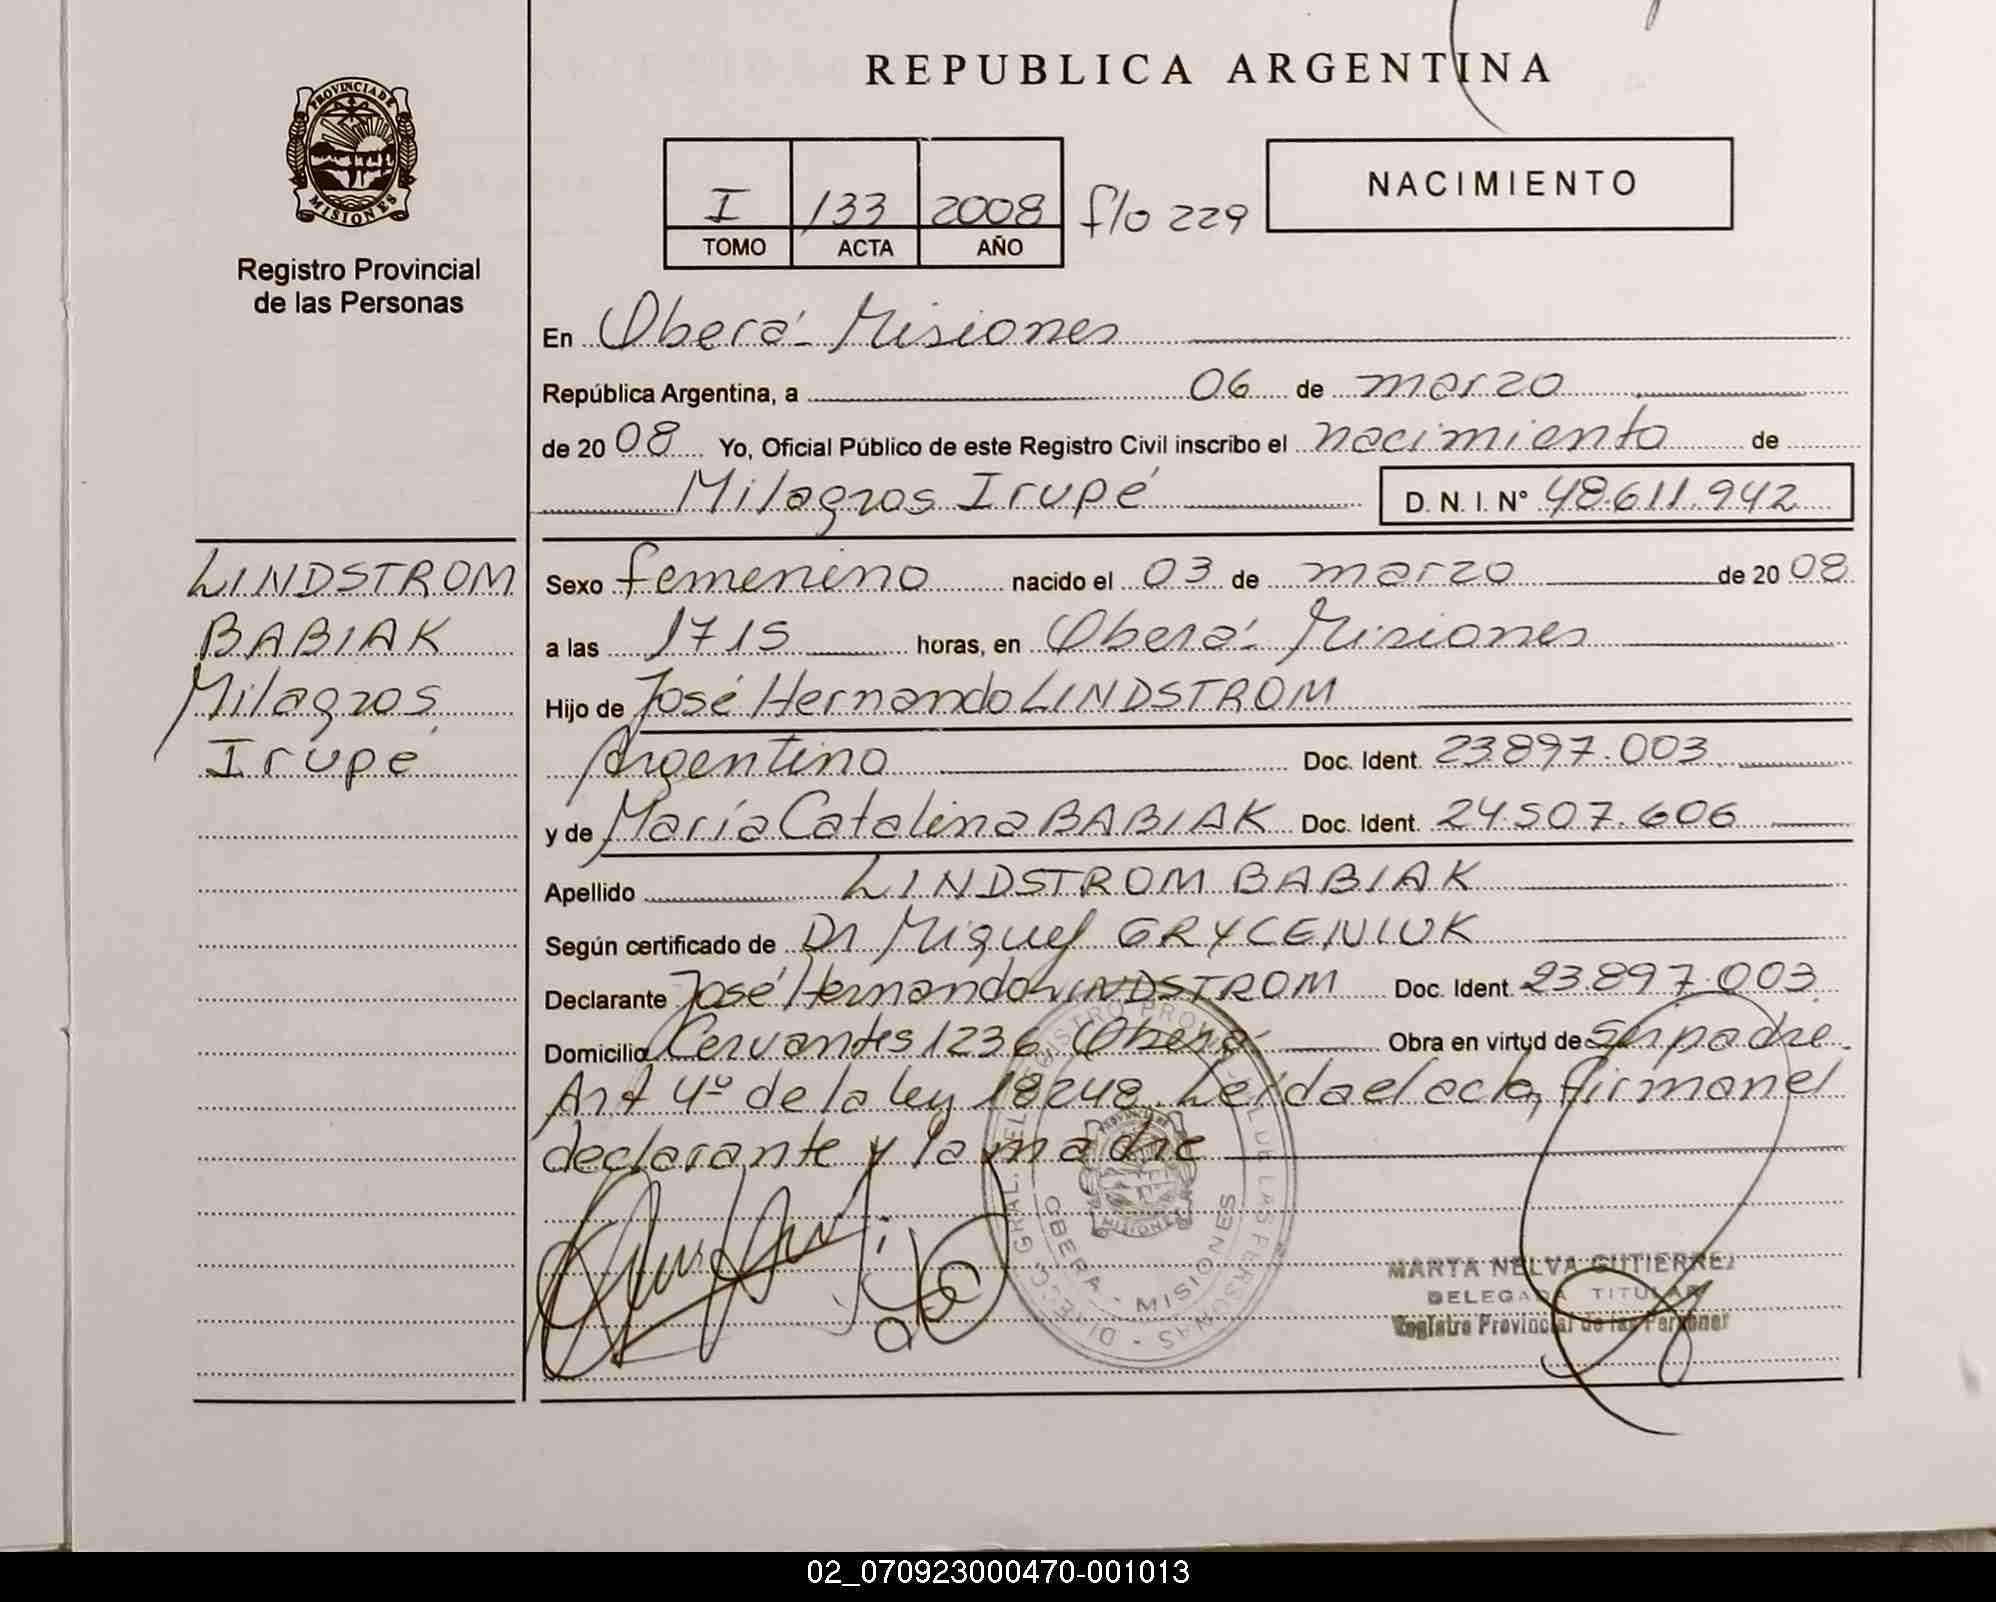 REPUBLICA ARGENTINA
PROVINCIA DE
MISIONES
Registro Provincial
de las Personas
I 133 2008 f/o 229
TOMO ACTA AÑO
NACIMIENTO
En Oberá - Misiones
República Argentina, a 06 de marzo
de 20 08 Yo, Oficial Público de este Registro Civil inscribo el nacimiento de
Milagros Irupé D. N. I. Nº 48.611.942
LINDSTROM
BABIAK
Milagros
Irupé
Sexo femenino nacido el 03 de marzo de 20 08
a las 1715 horas, en Oberá - Misiones
Hijo de José Hernando LINDSTROM
Argentino Doc. Ident. 23.897.003
y de María Catalina BABIAK Doc. Ident. 24.507.606
Apellido LINDSTROM BABIAK
Según certificado de Dr Miguel GRYCENIUK
Declarante José Hernando LINDSTROM Doc. Ident. 23.897.003
Domicilio Cervantes 1236 Oberá Obra en virtud de ser padre.
Art 4º de la ley 18248. Leída el acta, firman el
declarante y la madre
DIRECC. GRAL. DEL REGISTRO PROVINCIAL DE LAS PERSONAS
OBERA - MISIONES
MISIONES
MARTA NELVA GUTIERREZ
DELEGADA TITULAR
Registro Provincial de las Personas
02_070923000470-001013